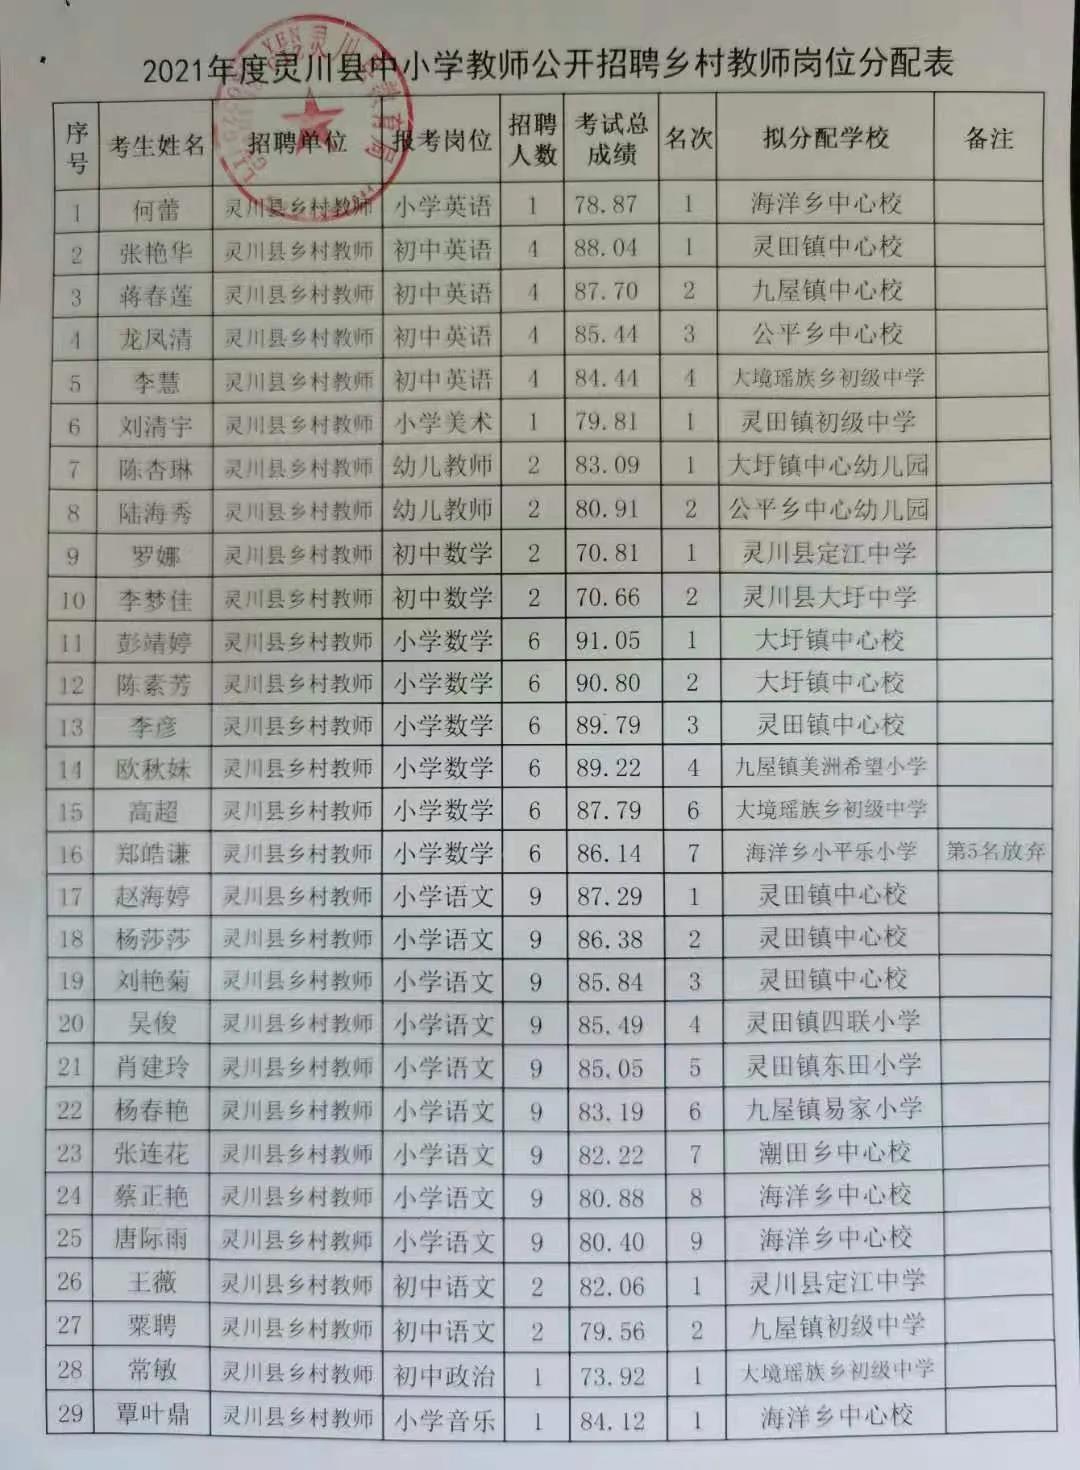 2021年度灵川县中小学教师公开招聘乡村教师岗位分配表
序号 考生姓名 招聘单位 报考岗位 招聘人数 考试总成绩 名次 拟分配学校 备注
1 何蕾 灵川县乡村教师 小学英语 1 78.87 1 海洋乡中心校
2 张艳华 灵川县乡村教师 初中英语 4 88.04 1 灵田镇中心校
3 蒋春莲 灵川县乡村教师 初中英语 4 87.70 2 九屋镇中心校
4 龙凤清 灵川县乡村教师 初中英语 4 85.44 3 公平乡中心校
5 李慧 灵川县乡村教师 初中英语 4 84.44 4 大境瑶族乡初级中学
6 刘清宇 灵川县乡村教师 小学美术 1 79.81 1 灵田镇初级中学
7 陈杏琳 灵川县乡村教师 幼儿教师 2 83.09 1 大圩镇中心幼儿园
8 陆海秀 灵川县乡村教师 幼儿教师 2 80.91 2 公平乡中心幼儿园
9 罗娜 灵川县乡村教师 初中数学 2 70.81 1 灵川县定江中学
10 李梦佳 灵川县乡村教师 初中数学 2 70.66 2 灵川县大圩中学
11 彭靖婷 灵川县乡村教师 小学数学 6 91.05 1 大圩镇中心校
12 陈素芳 灵川县乡村教师 小学数学 6 90.80 2 大圩镇中心校
13 李彦 灵川县乡村教师 小学数学 6 89.79 3 灵田镇中心校
14 欧秋妹 灵川县乡村教师 小学数学 6 89.22 4 九屋镇美洲希望小学
15 高超 灵川县乡村教师 小学数学 6 87.79 6 大境瑶族乡初级中学
16 郑皓谦 灵川县乡村教师 小学数学 6 86.14 7 海洋乡小平乐小学 第5名放弃
17 赵海婷 灵川县乡村教师 小学语文 9 87.29 1 灵田镇中心校
18 杨莎莎 灵川县乡村教师 小学语文 9 86.38 2 灵田镇中心校
19 刘艳菊 灵川县乡村教师 小学语文 9 85.84 3 灵田镇中心校
20 吴俊 灵川县乡村教师 小学语文 9 85.49 4 灵田镇四联小学
21 肖建玲 灵川县乡村教师 小学语文 9 85.05 5 灵田镇东田小学
22 杨春艳 灵川县乡村教师 小学语文 9 83.19 6 九屋镇易家小学
23 张连花 灵川县乡村教师 小学语文 9 82.22 7 潮田乡中心校
24 蔡正艳 灵川县乡村教师 小学语文 9 80.88 8 海洋乡中心校
25 唐际雨 灵川县乡村教师 小学语文 9 80.40 9 海洋乡中心校
26 王薇 灵川县乡村教师 初中语文 2 82.06 1 灵川县定江中学
27 粟聘 灵川县乡村教师 初中语文 2 79.56 2 九屋镇初级中学
28 常敏 灵川县乡村教师 初中政治 1 73.92 1 大境瑶族乡初级中学
29 覃叶鼎 灵川县乡村教师 小学音乐 1 84.12 1 海洋乡中心校